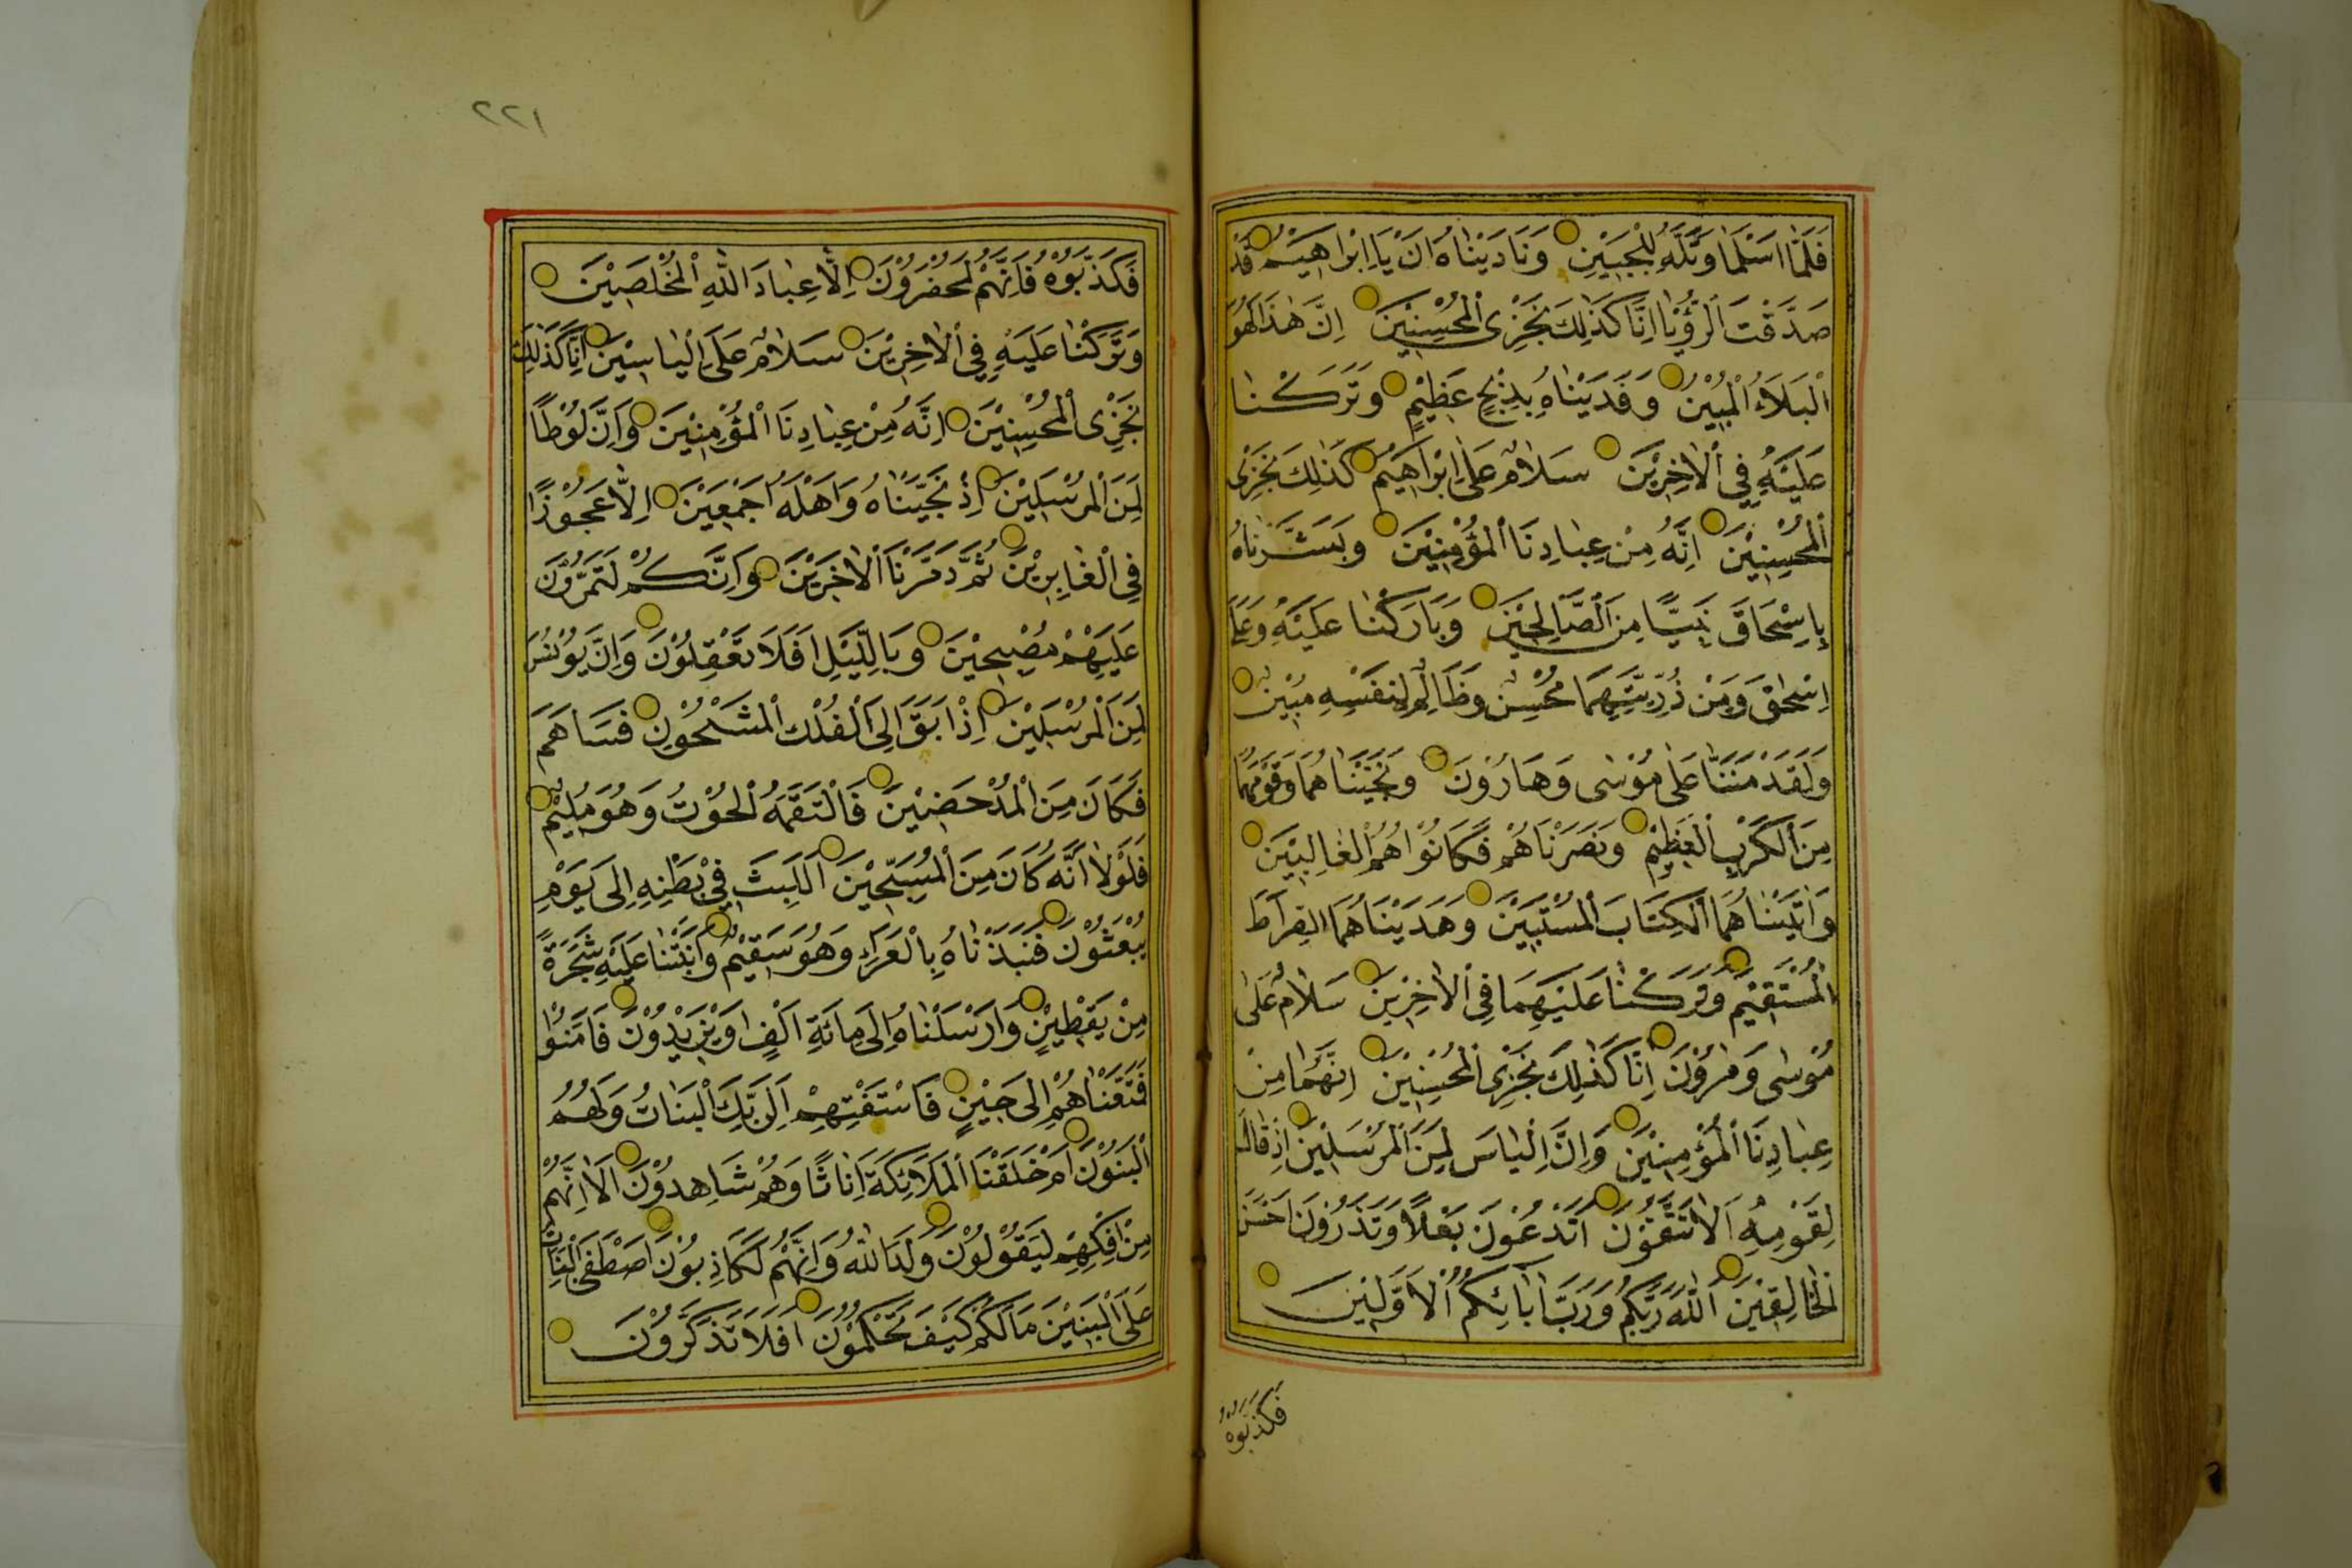 فَلَمَّا اَسْلَمَا وَتَلَّهُ لِلْجَبِيْنِ وَنَادَيْنَاهُ اَنْ يَا اِبْرَاهِيْمُ قَدْ
صَدَّقْتَ الرُّؤْيَا اِنَّا كَذٰلِكَ نَجْزِى الْمُحْسِنِيْنَ اِنَّ هٰذَا لَهُوَ
الْبَلَاءُ الْمُبِيْنُ وَفَدَيْنَاهُ بِذِبْحٍ عَظِيْمٍ وَتَرَكْنَا
عَلَيْهِ فِي الْاٰخِرِيْنَ سَلَامٌ عَلٰى اِبْرَاهِيْمَ كَذٰلِكَ نَجْزِى
الْمُحْسِنِيْنَ اِنَّهُ مِنْ عِبَادِنَا الْمُؤْمِنِيْنَ وَبَشَّرْنَاهُ
بِاِسْحَاقَ نَبِيًّا مِنَ الصَّالِحِيْنَ وَبَارَكْنَا عَلَيْهِ وَعَلٰى
اِسْحٰقَ وَمِنْ ذُرِّيَّتِهِمَا مُحْسِنٌ وَظَالِمٌ لِنَفْسِهِ مُبِيْنٌ
وَلَقَدْ مَنَنَّا عَلٰى مُوْسٰى وَهَارُوْنَ وَنَجَّيْنَاهُمَا وَقَوْمَهُمَا
مِنَ الْكَرْبِ الْعَظِيْمِ وَنَصَرْنَاهُمْ فَكَانُوْا هُمُ الْغَالِبِيْنَ
وَاٰتَيْنَاهُمَا الْكِتَابَ الْمُسْتَبِيْنَ وَهَدَيْنَاهُمَا الصِّرَاطَ
الْمُسْتَقِيْمَ وَتَرَكْنَا عَلَيْهِمَا فِى الْاٰخِرِيْنَ سَلَامٌ عَلٰى
مُوْسٰى وَهٰرُوْنَ اِنَّا كَذٰلِكَ نَجْزِى الْمُحْسِنِيْنَ اِنَّهُمَا مِنْ
عِبَادِنَا الْمُؤْمِنِيْنَ وَاِنَّ اِلْيَاسَ لَمِنَ الْمُرْسَلِيْنَ اِذْ قَالَ
لِقَوْمِهِ اَلَا تَتَّقُوْنَ اَتَدْعُوْنَ بَعْلًا وَتَذَرُوْنَ اَحْسَنَ
الْخَالِقِيْنَ اَللّٰهَ رَبَّكُمْ وَرَبَّ اٰبَائِكُمُ الْاَوَّلِيْنَ
فكذبوه
٢٢١
فَكَذَّبُوْهُ فَاِنَّهُمْ لَمُحْضَرُوْنَ اِلَّا عِبَادَ اللّٰهِ الْمُخْلَصِيْنَ
وَتَرَكْنَا عَلَيْهِ فِي الْاٰخِرِيْنَ سَلَامٌ عَلٰى اِلْيَاسِيْنَ اِنَّا كَذٰلِكَ
نَجْزِى الْمُحْسِنِيْنَ اِنَّهُ مِنْ عِبَادِنَا الْمُؤْمِنِيْنَ وَاِنَّ لُوْطًا
لَمِنَ الْمُرْسَلِيْنَ اِذْ نَجَّيْنَاهُ وَاَهْلَهُ اَجْمَعِيْنَ اِلَّا عَجُوْزًا
فِى الْغَابِرِيْنَ ثُمَّ دَمَّرْنَا الْاٰخَرِيْنَ وَاِنَّكُمْ لَتَمُرُّوْنَ
عَلَيْهِمْ مُصْبِحِيْنَ وَبِالَّيْلِ اَفَلَا تَعْقِلُوْنَ وَاِنَّ يُوْنُسَ
لَمِنَ الْمُرْسَلِيْنَ اِذْ اَبَقَ اِلَى الْفُلْكِ الْمَشْحُوْنِ فَسَاهَمَ
فَكَانَ مِنَ الْمُدْحَضِيْنَ فَالْتَقَمَهُ الْحُوْتُ وَهُوَ مُلِيْمٌ
فَلَوْلَا اَنَّهُ كَانَ مِنَ الْمُسَبِّحِيْنَ لَلَبِثَ فِيْ بَطْنِهِ اِلٰى يَوْمِ
يُبْعَثُوْنَ فَنَبَذْنَاهُ بِالْعَرَاءِ وَهُوَ سَقِيْمٌ وَاَنْبَتْنَا عَلَيْهِ شَجَرَةً
مِنْ يَقْطِيْنٍ وَاَرْسَلْنَاهُ اِلٰى مِائَةِ اَلْفٍ اَوْ يَزِيْدُوْنَ فَاٰمَنُوْا
فَمَتَّعْنَاهُمْ اِلٰى حِيْنٍ فَاسْتَفْتِهِمْ اَلِرَبِّكَ الْبَنَاتُ وَلَهُمُ
الْبَنُوْنَ اَمْ خَلَقْنَا الْمَلَائِكَةَ اِنَاثًا وَهُمْ شَاهِدُوْنَ اَلَا اِنَّهُمْ
مِنْ اِفْكِهِمْ لَيَقُوْلُوْنَ وَلَدَ اللّٰهُ وَاِنَّهُمْ لَكَاذِبُوْنَ اَصْطَفَى الْبَنَاتِ
عَلَى الْبَنِيْنَ مَالَكُمْ كَيْفَ تَحْكُمُوْنَ اَفَلَا تَذَكَّرُوْنَ